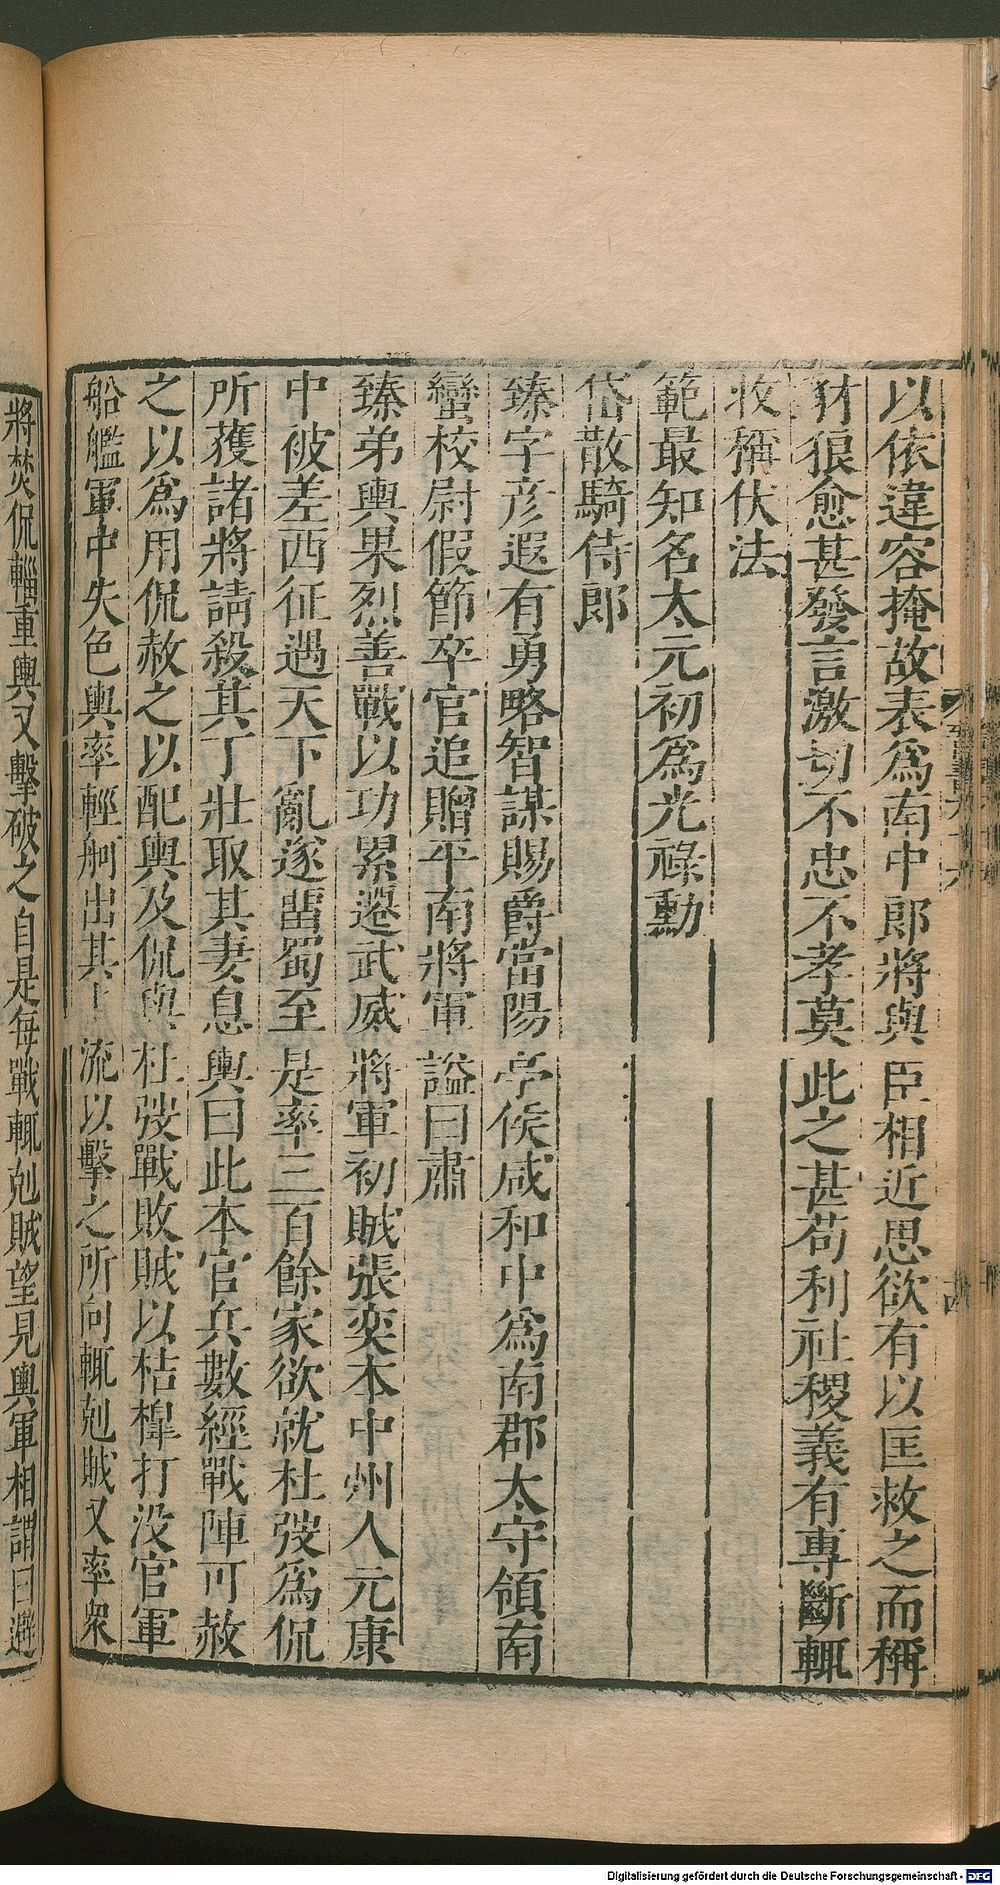 以依違容掩故表爲南中郎將與臣相近思欲有以匡救之而稱
豺狼愈甚發言激切不忠不孝莫此之甚苟利社稷義有專斷輒
收稱伏法
範最知名太元初爲光祿勳
岱散騎侍郎
臻字彥遐有勇略智謀賜爵當陽亭侯咸和中爲南郡太守領南
蠻校尉假節卒官追贈平南將軍謚曰肅
臻弟輿果烈善戰以功累遷武威將軍初賊張奕本中州人元康
中被差西征遇天下亂遂畱蜀至是率三百餘家欲就杜弢爲侃
所獲諸將請殺其丁壯取其妻息輿曰此本官兵數經戰陣可赦
之以爲用侃赦之以配輿及侃與杜弢戰敗賊以桔槹打沒官軍
船艦軍中失色輿率輕舸出其上流以擊之所向輒剋賊又率衆
將焚侃輜重輿又擊破之自是每戰輒剋賊望見輿軍相謂曰避
Digitalisierung gefördert durch die Deutsche Forschungsgemeinschaft - DFG